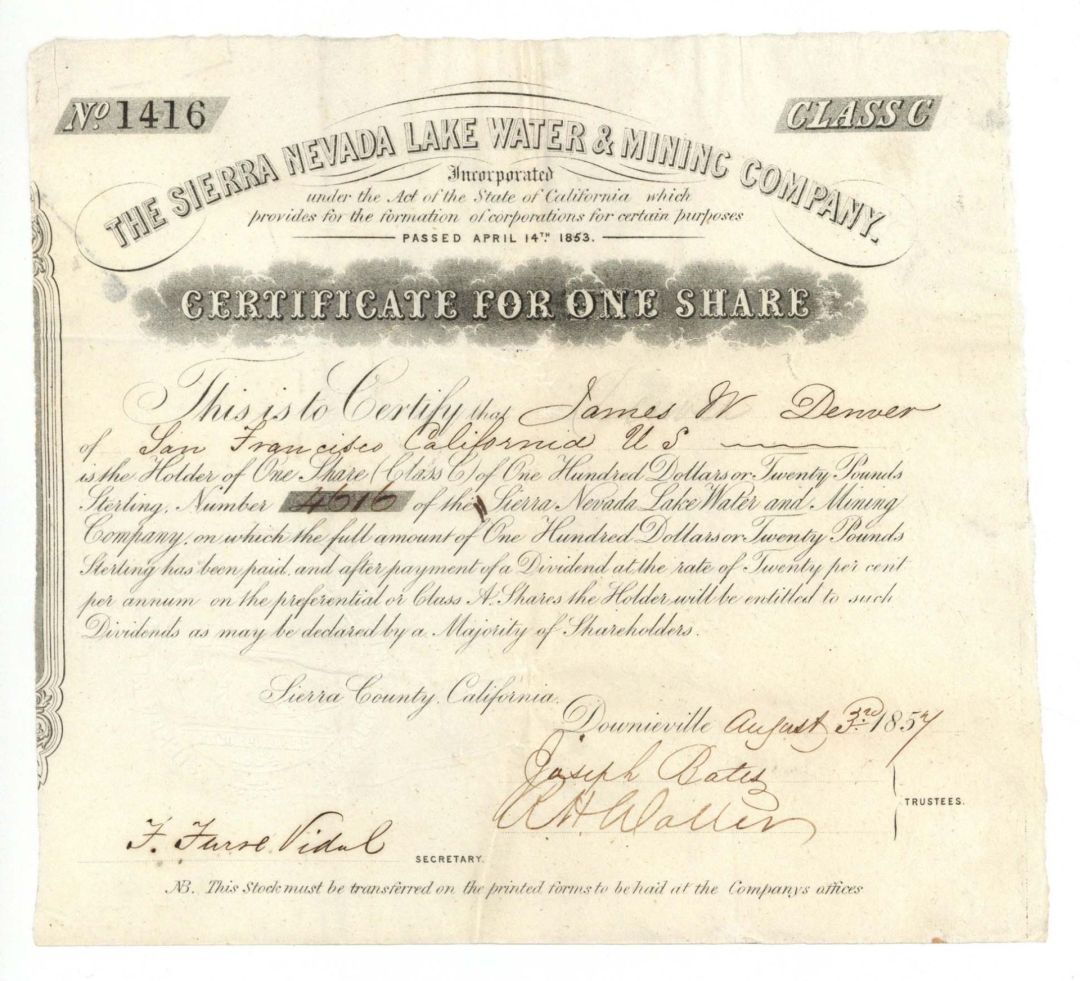 No 1416
CLASS C
THE SIERRA NEVADA LAKE WATER & MINING COMPANY.
Incorporated
under the Act of the State of California which
provides for the formation of corporations for certain purposes
PASSED APRIL 14TH 1853.
CERTIFICATE FOR ONE SHARE
This is to Certify that James W Denver
of San Francisco California U S
is the Holder of One Share (Class C) of One Hundred Dollars or Twenty Pounds
Sterling, Number 4616 of the Sierra Nevada Lake Water and Mining
Company, on which the full amount of One Hundred Dollars or Twenty Pounds
Sterling has been paid, and after payment of a Dividend at the rate of Twenty per cent
per annum on the preferential or Class A. Shares the Holder will be entitled to such
Dividends as may be declared by a Majority of Shareholders.
Sierra County, California.
Downieville August 3rd 1857
Joseph Bates
R H
TRUSTEES.
F. Furse Vidal
SECRETARY.
NB. This Stock must be transferred on the printed forms to be had at the Companys offices